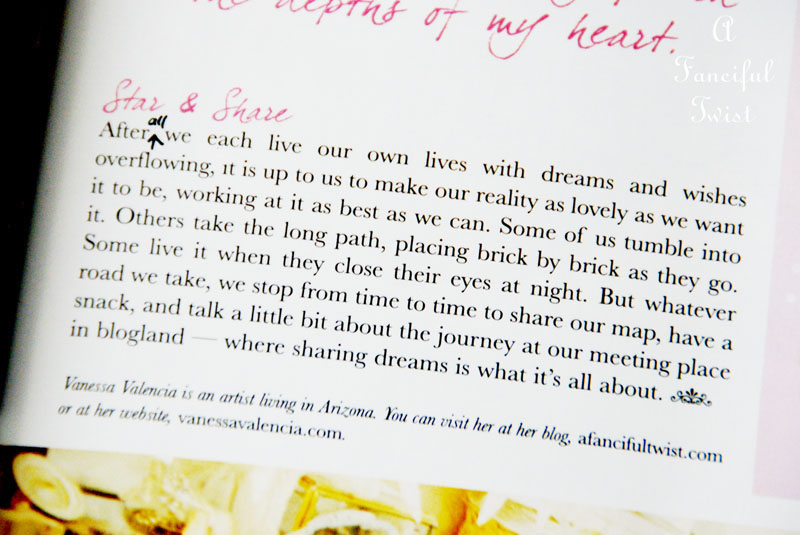 the depths of my heart.
A
Fanciful
Twist
Star & Share
After all we each live our own lives with dreams and wishes
overflowing, it is up to us to make our reality as lovely as we want
it to be, working at it as best as we can. Some of us tumble into
it. Others take the long path, placing brick by brick as they go.
Some live it when they close their eyes at night. But whatever
road we take, we stop from time to time to share our map, have a
snack, and talk a little bit about the journey at our meeting place
in blogland — where sharing dreams is what it's all about.
Vanessa Valencia is an artist living in Arizona. You can visit her at her blog, afancifultwist.com
or at her website, vanessavalencia.com.